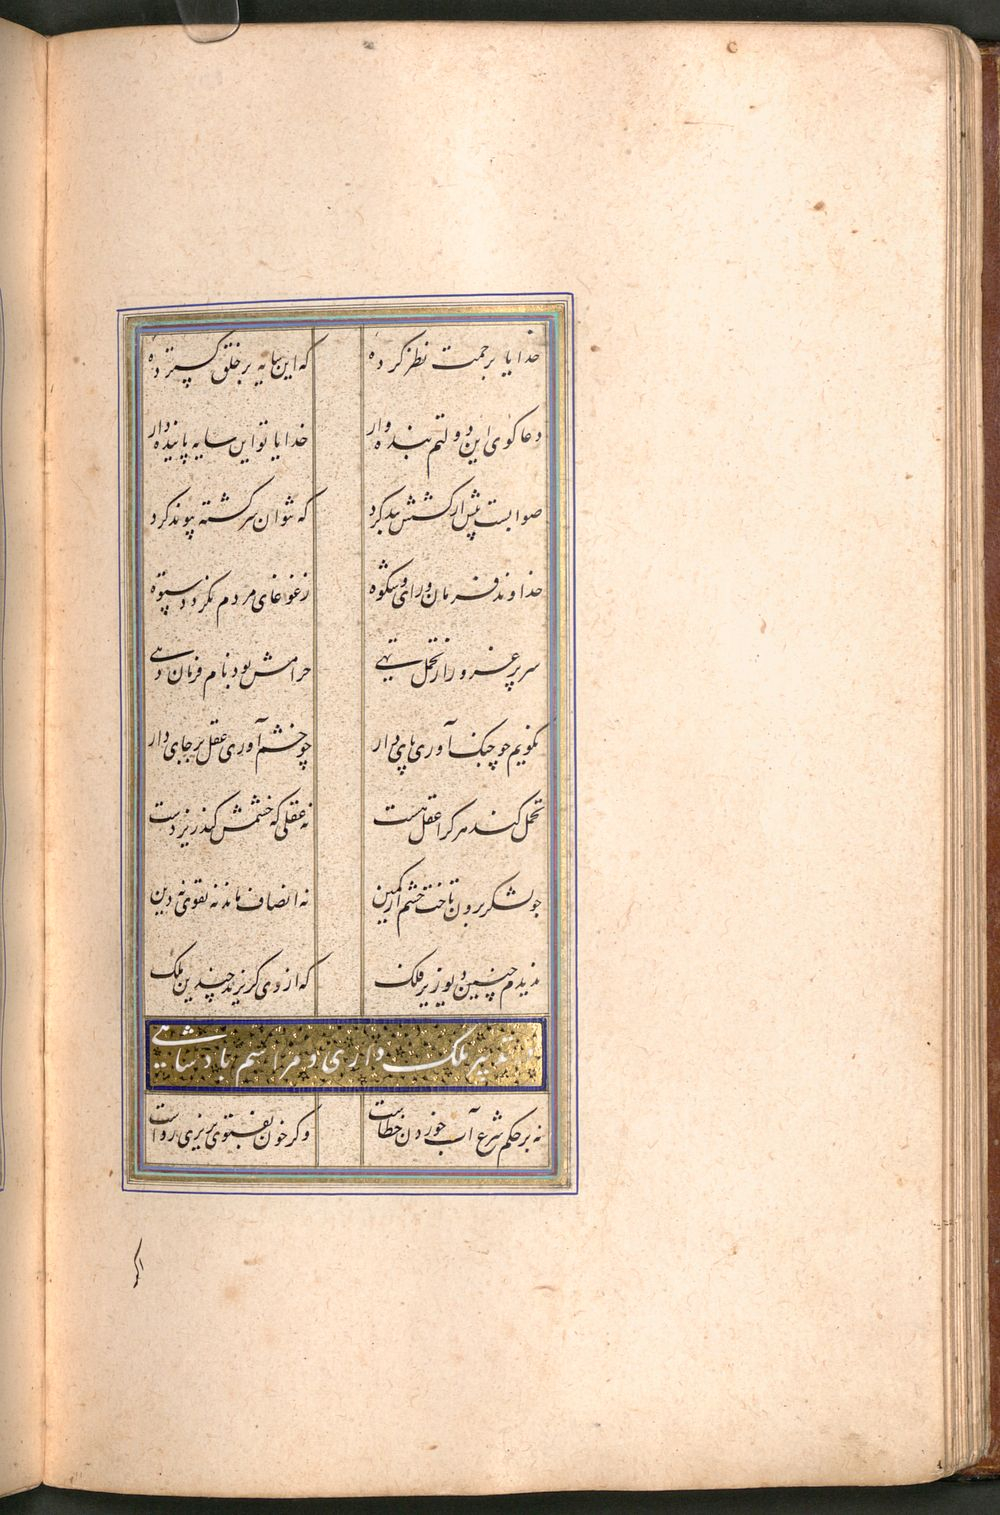 خدایا برحمت نظر کرده که این سایه بر خلق گسترده
دعا گوی این دولتم بنده وار خدایا تو این سایه پاینده دار
صوابست پیش از کشش بند کرد که نتوان سر کشته پیوند کرد
خداوند فرمان و رای و شکوه ز غوغای مردم نگردد ستوه
سر پر غرور از تحمل تهی حرامش بود نام فرمان دهی
نگویم چو جنک آوری پای دار چو خشم آوری عقل بر جای دار
تحمل کند هر کرا عقل هست نه عقلی که خشمش کند زیر دست
چو لشکر برون تاخت خشم از کمین نه انصاف ماند نه تقوی نه دین
ندیدم چنین دیو زیر فلک که از وی کریزند چندین ملک
تدبیر ملک داری و مراسم پادشاهی
نه بر حکم شرع آب خوردن خطاست وکر خون بفتوی بریزی رواست